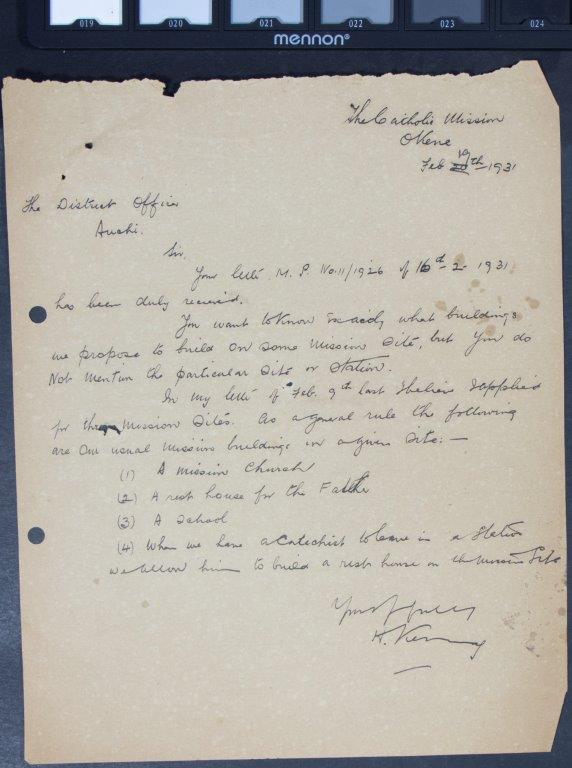 019 020 021 022 023 024
mennon®
The Catholic Mission
Okene
Feb 19th 1931
The District Officer
Auchi.
Sir,
Your letter M.P. No.11/1926 of 16th-2-1931
has been duly received.
You want to know exactly what buildings
we propose to build on some mission site, but you do
not mention the particular site or station.
In my letter of Feb. 9th last I applied
for three mission sites. As a general rule the following
are our usual mission buildings in a given site:—
(1) A mission Church
(2) A rest house for the Father
(3) A School
(4) When we have a catechist to leave in a station
we allow him to build a rest house on the mission site
Yours
H.